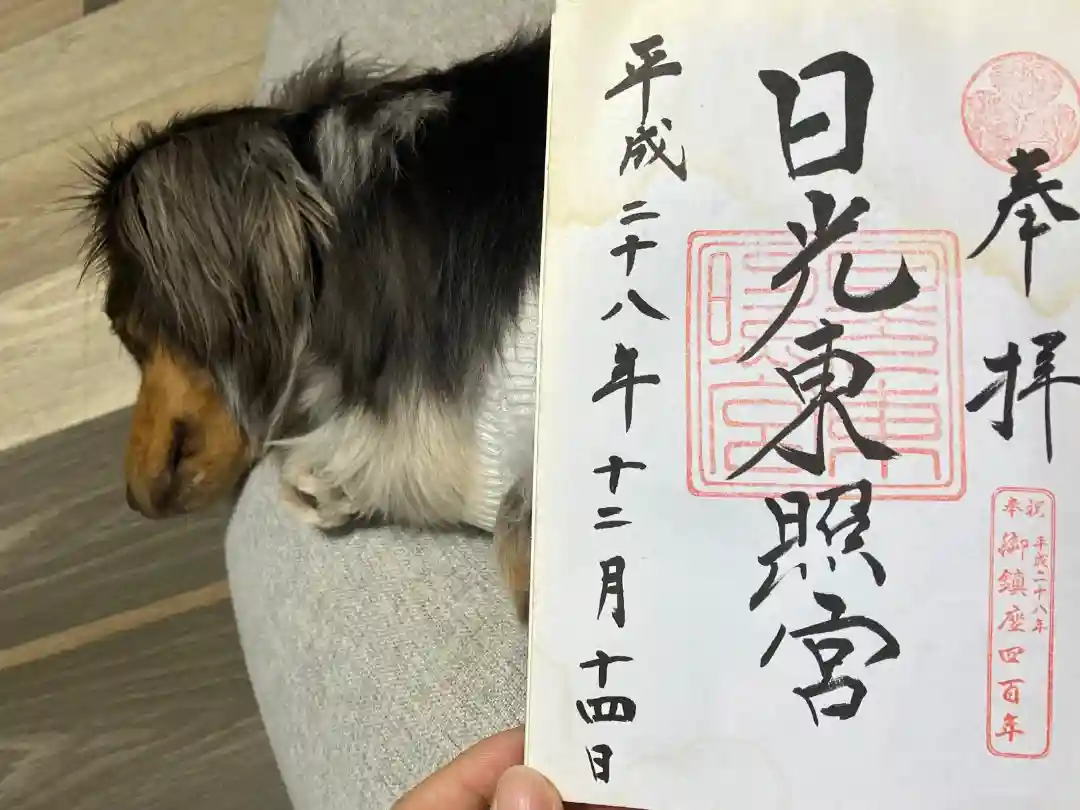 奉拝
奉祝
平成二十八年
御鎮座四百年
日光東照宮
平成二十八年十二月十四日